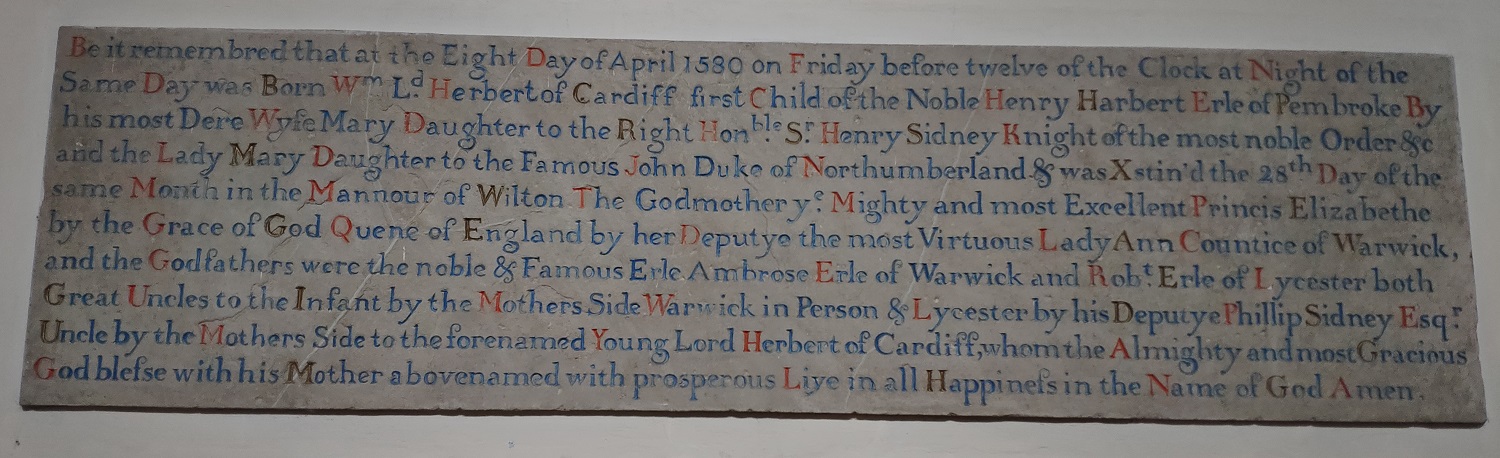 Be it remembred that at the Eight Day of April 1580 on Friday before twelve of the Clock at Night of the
Same Day was Born Wm Ld. Herbert of Cardiff first Child of the Noble Henry Harbert Erle of Pembroke By
his most Dere Wyfe Mary Daughter to the Right Honble. Sr. Henry Sidney Knight of the most noble Order &c
and the Lady Mary Daughter to the Famous John Duke of Northumberland & was Xstin'd the 28th Day of the
same Month in the Mannour of Wilton The Godmother ye. Mighty and most Excellent Princis Elizabethe
by the Grace of God Quene of England by her Deputye the most Virtuous Lady Ann Countice of Warwick,
and the Godfathers were the noble & Famous Erle Ambrose Erle of Warwick and Robt. Erle of Lycester both
Great Uncles to the Infant by the Mothers Side Warwick in Person & Lycester by his Deputye Phillip Sidney Esqr.
Uncle by the Mothers Side to the forenamed Young Lord Herbert of Cardiff, whom the Almighty and most Gracious
God blefse with his Mother abovenamed with prosperous Liye in all Happinefs in the Name of God Amen.